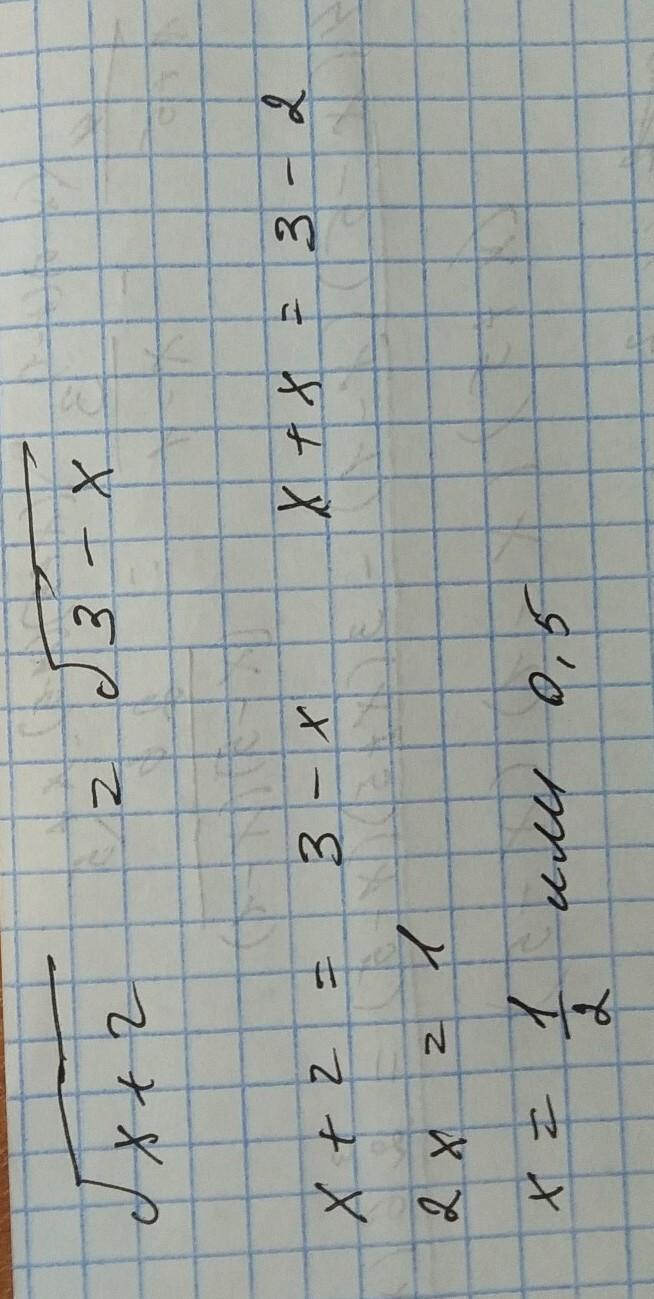 √x+2 = √3-x
x+2 = 3-x x+x=3-2
2x = 1
x = 1/2 или 0,5